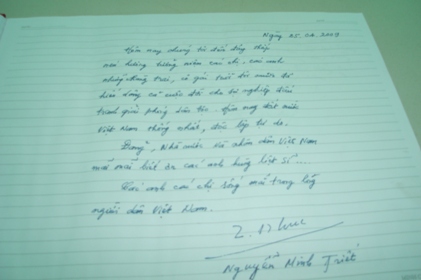 Ngày 25.04.2009
Hôm nay chúng tôi đến đây thắp
nén hương tưởng niệm các chị, các anh
những người trai, cô gái tuổi
cả cuộc đời cho sự nghiệp đấu
tranh giải phóng dân tộc. Hôm nay đất nước
Việt Nam thống nhất, độc lập tự do.
Đảng, Nhà nước và nhân dân Việt Nam
mãi mãi biết ơn các anh hùng liệt sĩ....
Các anh các chị sống mãi trong lòng
người dân Việt Nam.
Nguyễn Minh Triết